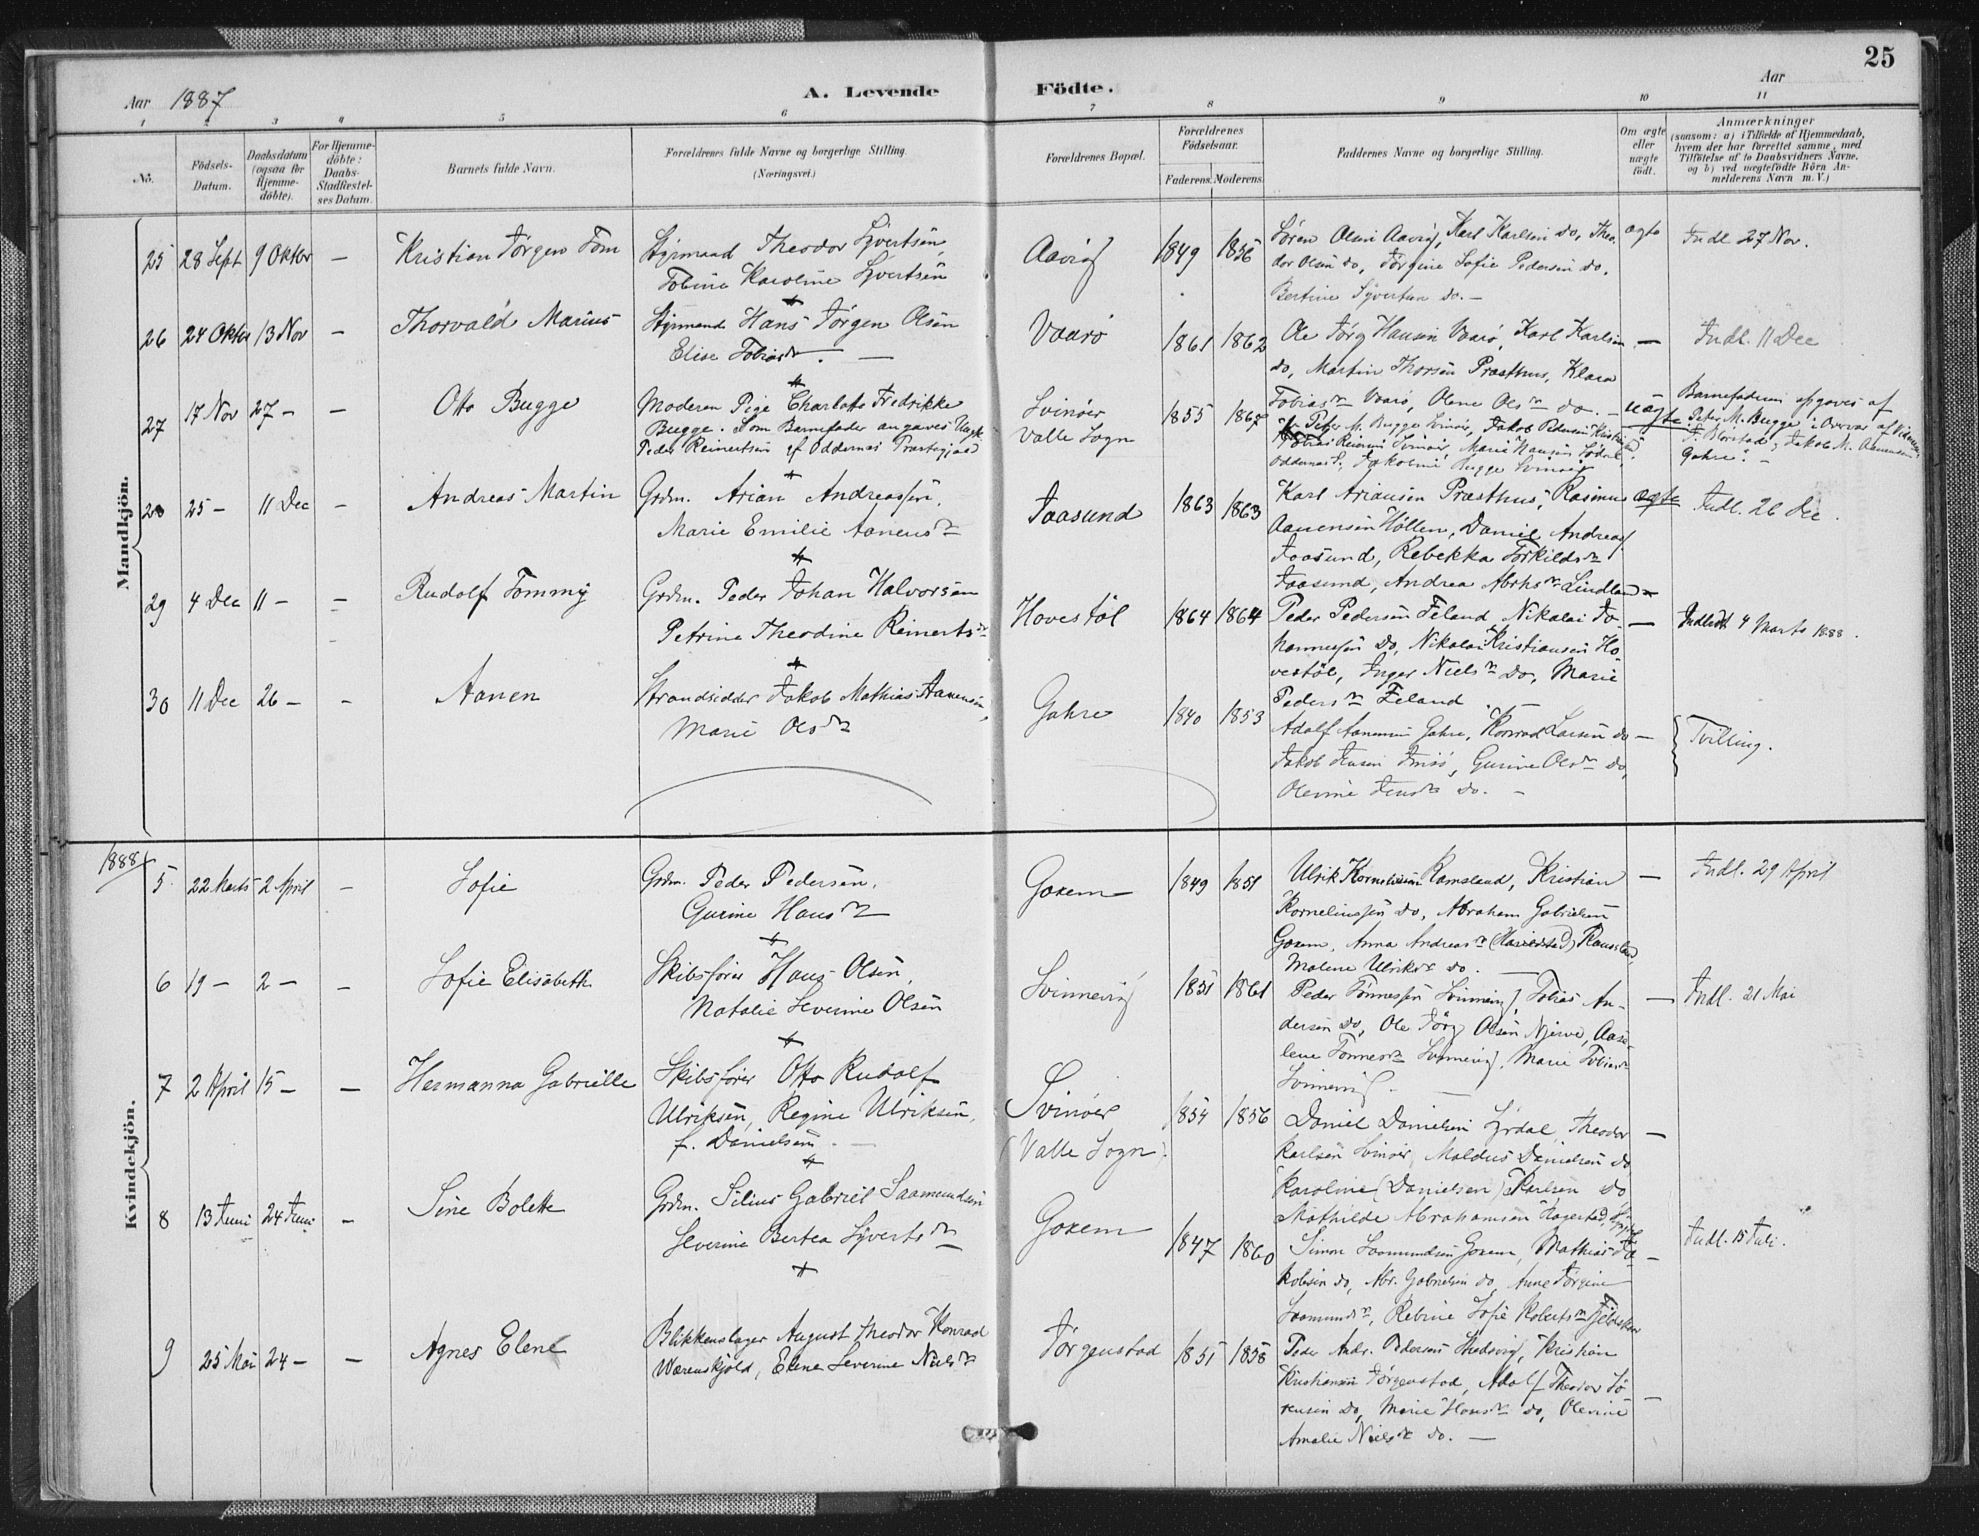 25
Aar 1887
A. Levende Födte.
Aar
1 2 3 4 5 6 7 8 9 10 11
No.
Födsels-Datum.
Daabsdatum (ogsaa for Hjemmedöbte).
For Hjemmedöbte: Daabs-Stadfæstelses Datum.
Barnets fulde Navn.
Forældrenes fulde Navne og borgerlige Stilling.
(Næringsvei.)
Forældrenes Bopæl.
Forældrenes Födselsaar.
Faderens. Moderens.
Faddernes Navne og borgerlige Stilling.
Om ægte eller uægte födt.
Anmærkninger
(saasom: a) i Tilfælde af Hjemmedaab,
hvem der har forrettet samme, med
Tilföielse af to Daabsvidners Navne,
og b) ved uægtefödte Börn An-
melderens Navn m. V.)
Mandkjön.
25 28 Sept 9 Oktbr — Kristian Jörgen Tom
Styrmand Theodor Syvertsen,
Tobine Karoline Syvertsen
Aavig 1849 1856
Sören Olsen Aavig, Karl Karlsen do, Theo-
dor Olsen do, Jörgine Sofie Pedersen do.
Bertine Syvertsen do. —
ægte
Indl 27 Nov.
26 24 Oktbr 13 Nov — Thorvald Marius
Styrmand Hans Jörgen Olsen
Elise Tobiasdr. —
Vaarö 1861 1862
Ole Jörg Hansen Vaarö, Karl Karlsen
do, Martin Thorsen Præsthus, Klara
Tobiasdr Vaarö, Olene Olsdr do. —
—
Indl. 11 Dec
27 17 Nov 27 — — Otto Bugge
Moderen Pige Charlotte Fredrikke
Bugge. Som Barnefader angaves Ungk.
Peder Reinertsen af Oddernæs Præstegjæld
Svinöer
Valle Sogn
1855 1867
Peter M. Bugge Svinöer, Jakob Pedersen
Tobias Reiersen Svinöer, Marie Hansen
Oddernæs, Jakobine Bugge Svinöer
uægte
Barnefaderen opgaves af
Peter M. Bugge i Overvær af Vidnerne
Jakob M. Aanensen
Gahre". —
28 25 — 11 Dec — Andreas Martin
Grdm. Arian Andreassen,
Marie Emilie Aanensdr
Faasund 1863 1863
Karl Ariansen Præsthus, Rasmus
Aanensen Höllen, Daniel Andreass.
Faasund, Rebekka Torkildsdr
Faasund, Andrea Abrhsdr Lindland
ægte
Indl. 26 Dec.
29 4 Dec 11 — — Rudolf Tommy
Grdm. Peder Johan Halvorsen
Petrine Theodine Reinertsdr
Hovestöl 1864 1864
Peder Pedersen Feland, Nikolai Jo-
hannessen do, Nikolai Kristiansen Ho-
vestöl, Inger Nielsdr do, Marie
Pedersdr Feland. —
—
Indledt 4 Marts 1888.
30 11 Dec 26 — — Aanen
Strandsidder Jakob Mathias Aanensen,
Marie Olsdr
Gahre 1840 1853
Adolf Aanensen Gahre, Konrad Larsen do
Jakob Jensen, Gurine Olsdr do,
Olevine Jensdr do. —
—
Tvilling.
1888
Kvindekjön.
5 22 Marts 2 April — Sofie
Grdm. Peder Pedersen,
Gurine Hansdr
Goxem 1849 1851
Ulrik Korneliussen Ramsland, Kristian
Korneliussen do, Abraham Gabrielsen
Goxem, Anna Andreasdr Ramsland,
Malene Ulriksdr do. —
—
Indl. 29 April
6 19 — 2 — — Sofie Elisabeth
Skibsförer Hans Olsen,
Natalie Severine Olsen
Svinnevig 1851 1861
Peder Tönnessen Svinnevig, Tobias An-
dersen do, Ole Jörg Olsen Njerve, Aase-
lene Tönnesdr Svinnevig, Marie Tobiasdr
Svinnevig. —
—
Indl. 21 Mai
7 2 April 15 — — Hermanna Gabrielle
Skibsförer Otto Rudolf
Ulriksen, Regine Ulriksen,
f. Danielsen. —
Svinöer
(Valle Sogn).
1854 1856
Daniel Danielsen Syrdal, Theodor
Karlsen Svinöer, Maldus Danielsen do
Karoline (Danielsen) Karlsen do
Mathilde Abrahamsen Hagestad,
—
8 13 Juni 24 Juni — Sine Bolette
Grdm. Silius Gabriel Saamundsen
Severine Bertea Syvertsdr
Goxem 1847 1860
Simon Saamundsen Goxem, Mathias Ja-
kobsen do, Abr. Gabrielsen do, Anne Jörgine
Saamundsdr, Rebine Sofie Robertsdr Fjeldskaar
—
Indl. 15 Juli.
9 25 Mai 24 — — Agnes Elene
Blikkenslager August Theodor Konrad
Wærenskjold, Elene Severine Nielsdr
Jörgenstad 1851 1858
Peder Andr. Pedersen, Kristian
Kristiansen Jörgenstad, Adolf Theodor Sö-
rensen do, Marie Hansdr do, Olevine
Amalie Nielsdr do. —
—